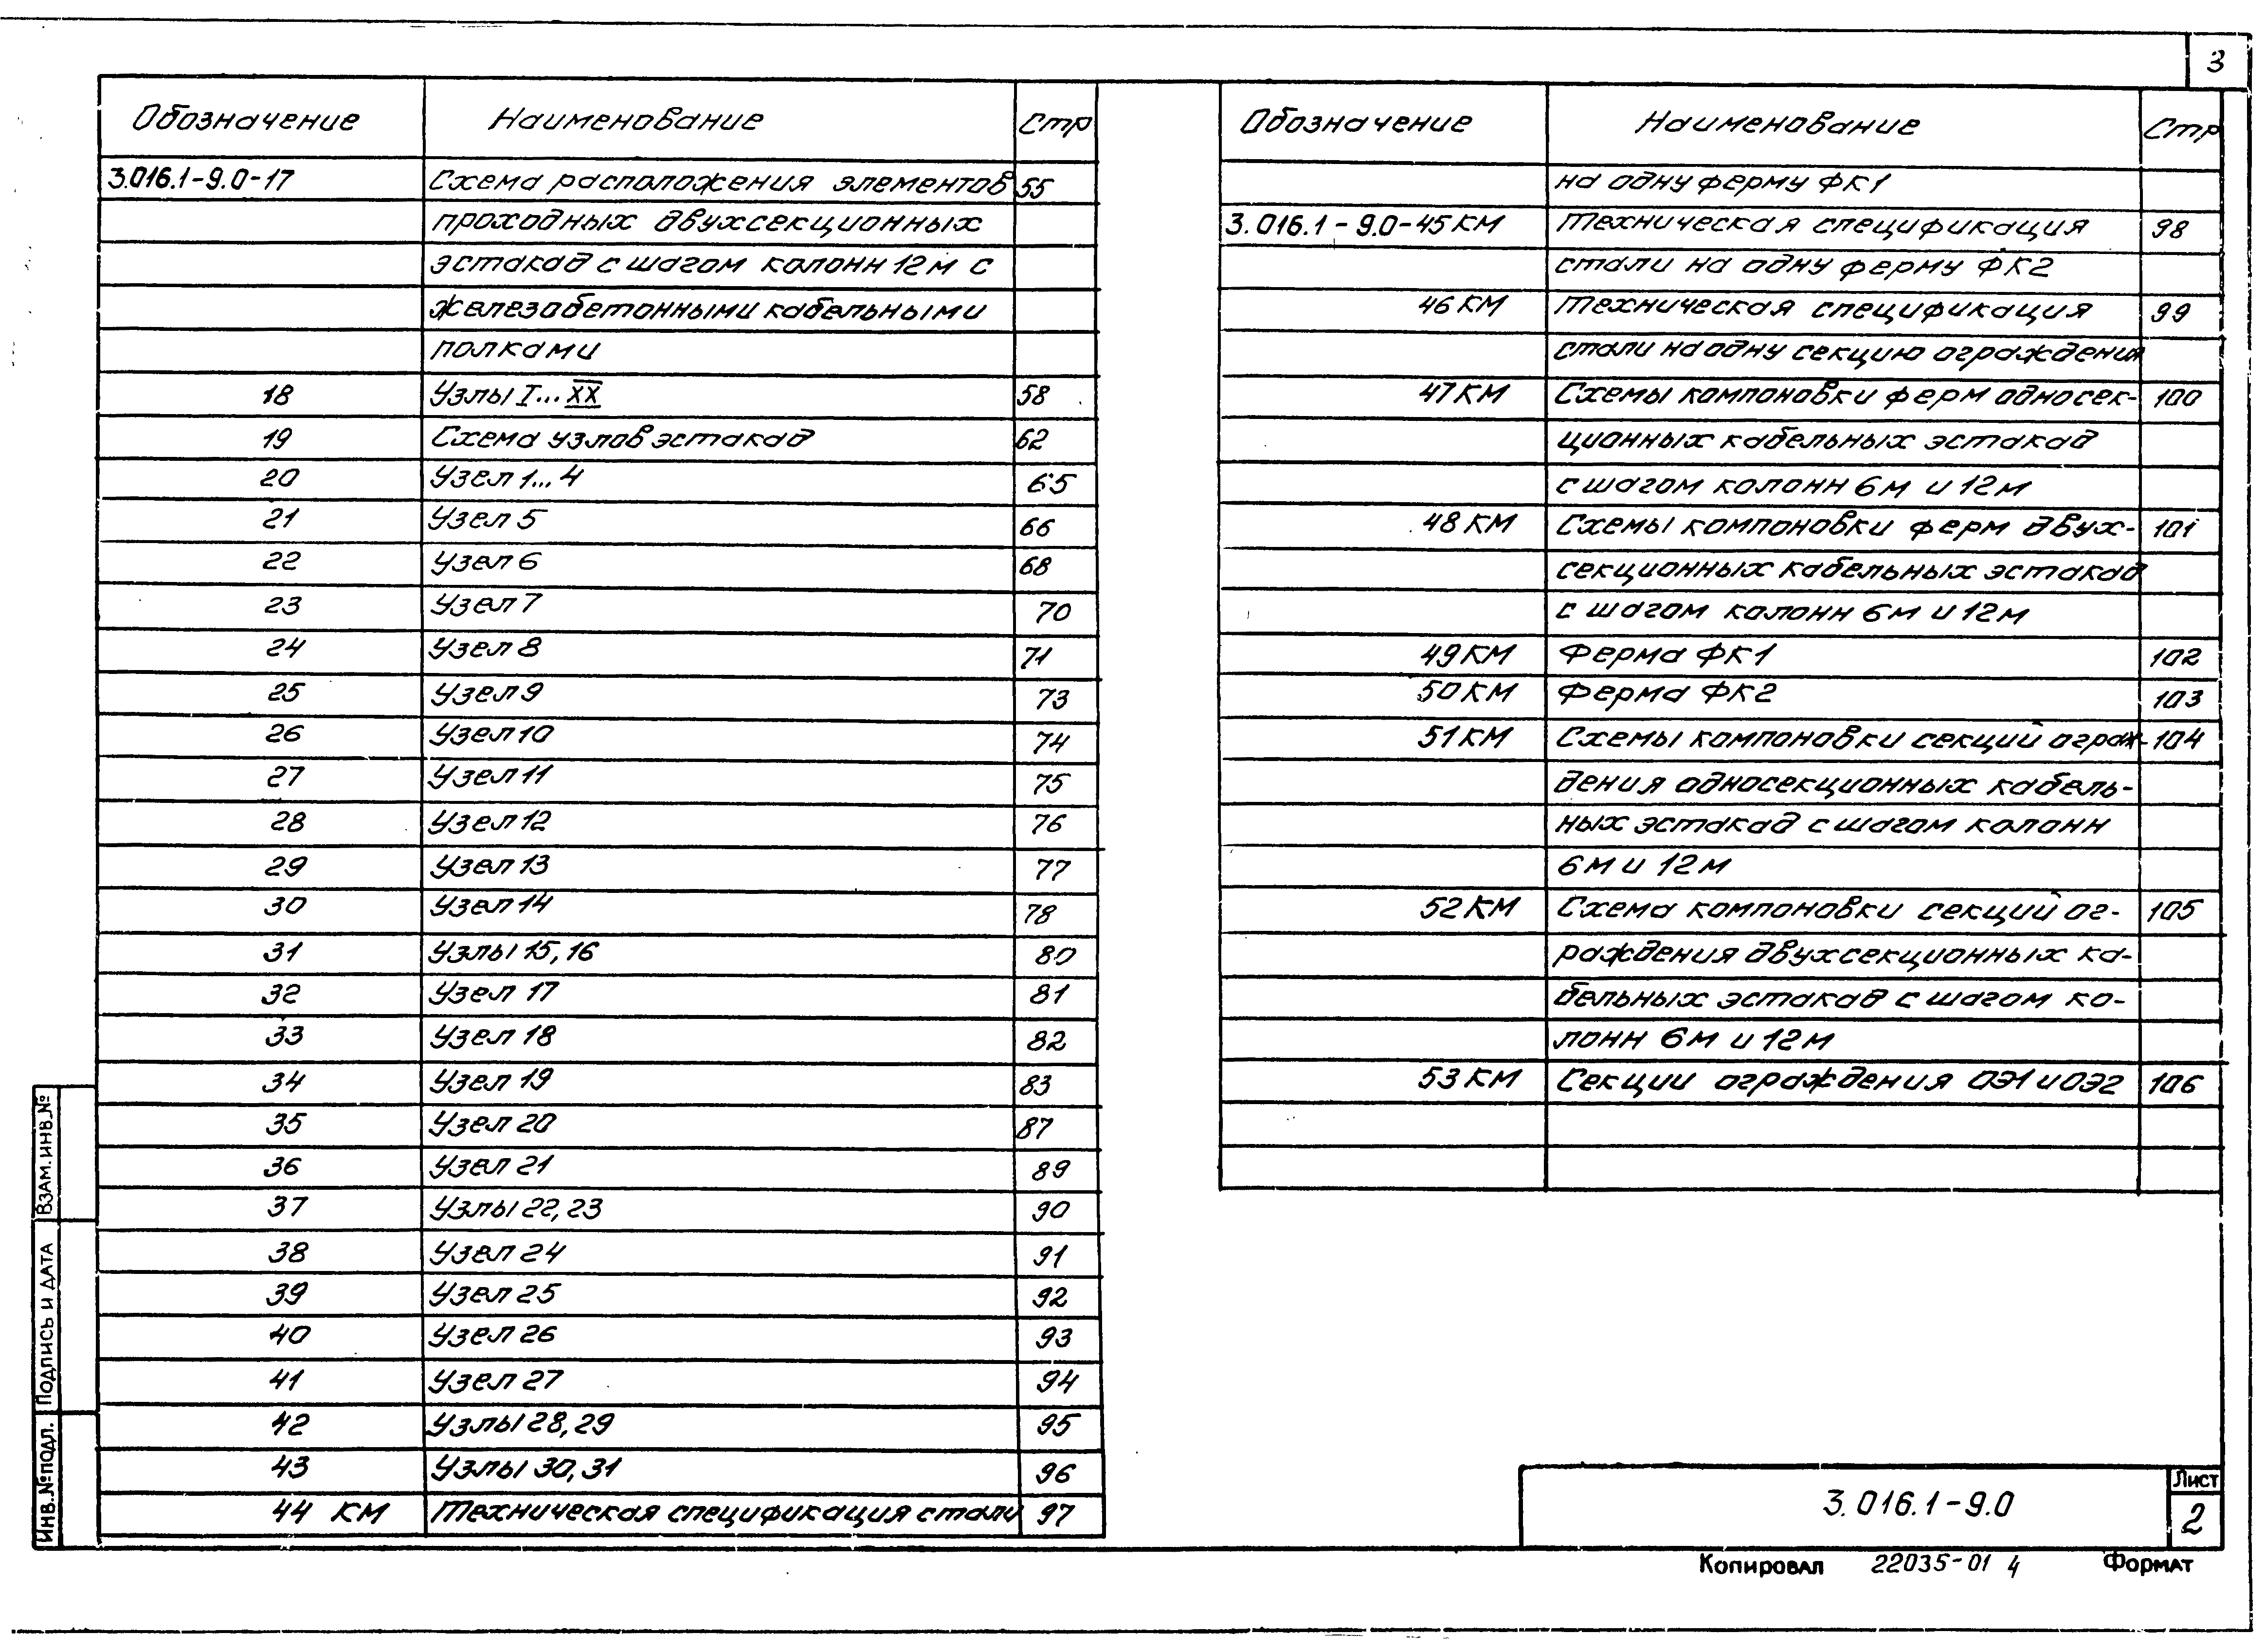 3
Обозначение Наименование Стр
3.016.1-9.0-17 Схема расположения элементов 55
проходных двухсекционных
эстакад с шагом колонн 12м с
железобетонными кабельными
полками
18 Узлы I...XX 58
19 Схема узлов эстакад 62
20 Узел 1...4 65
21 Узел 5 66
22 Узел 6 68
23 Узел 7 70
24 Узел 8 71
25 Узел 9 73
26 Узел 10 74
27 Узел 11 75
28 Узел 12 76
29 Узел 13 77
30 Узел 14 78
31 Узлы 15, 16 80
32 Узел 17 81
33 Узел 18 82
34 Узел 19 83
35 Узел 20 87
36 Узел 21 89
37 Узлы 22, 23 90
38 Узел 24 91
39 Узел 25 92
40 Узел 26 93
41 Узел 27 94
42 Узлы 28, 29 95
43 Узлы 30, 31 96
44 КМ Техническая спецификация стали 97
Обозначение Наименование Стр
на одну ферму ФК1
3.016.1-9.0-45КМ Техническая спецификация 98
стали на одну ферму ФК2
46КМ Техническая спецификация 99
стали на одну секцию ограждения
47КМ Схемы компоновки ферм односек- 100
ционных кабельных эстакад
с шагом колонн 6м и 12м
48КМ Схемы компоновки ферм двух- 101
секционных кабельных эстакад
с шагом колонн 6м и 12м
49КМ Ферма ФК1 102
50КМ Ферма ФК2 103
51КМ Схемы компоновки секций ограж- 104
дения односекционных кабель-
ных эстакад с шагом колонн
6м и 12м
52КМ Схема компоновки секций ог- 105
раждения двухсекционных ка-
бельных эстакад с шагом ко-
лонн 6м и 12м
53КМ Секции ограждения ОЭ1 и ОЭ2 106
Взам. инв. №
Подпись и дата
Инв. № подл.
3.016.1-9.0
Лист
2
Копировал 22035-01 4 Формат